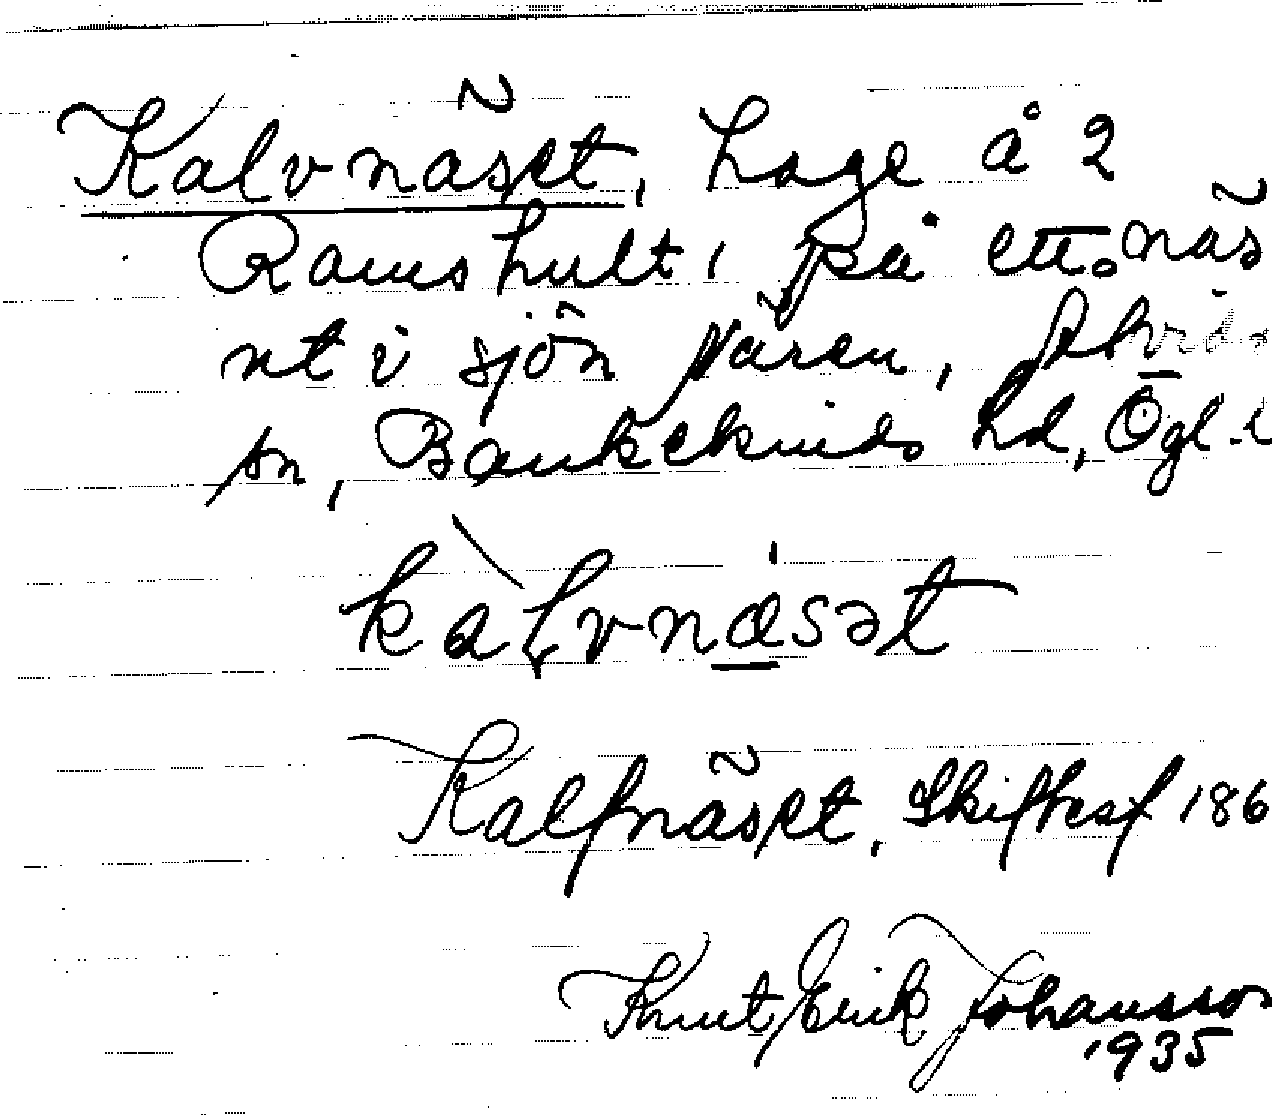 Kalvnäset, hage å 2
Ramshult, på ett näs
ut i sjön Våren, Skrids
sn, Bankekinds hd, Ögl.
kalvnäsət
Kalfnäset, Skiftesf 186
Knut Erik Johansso
1935